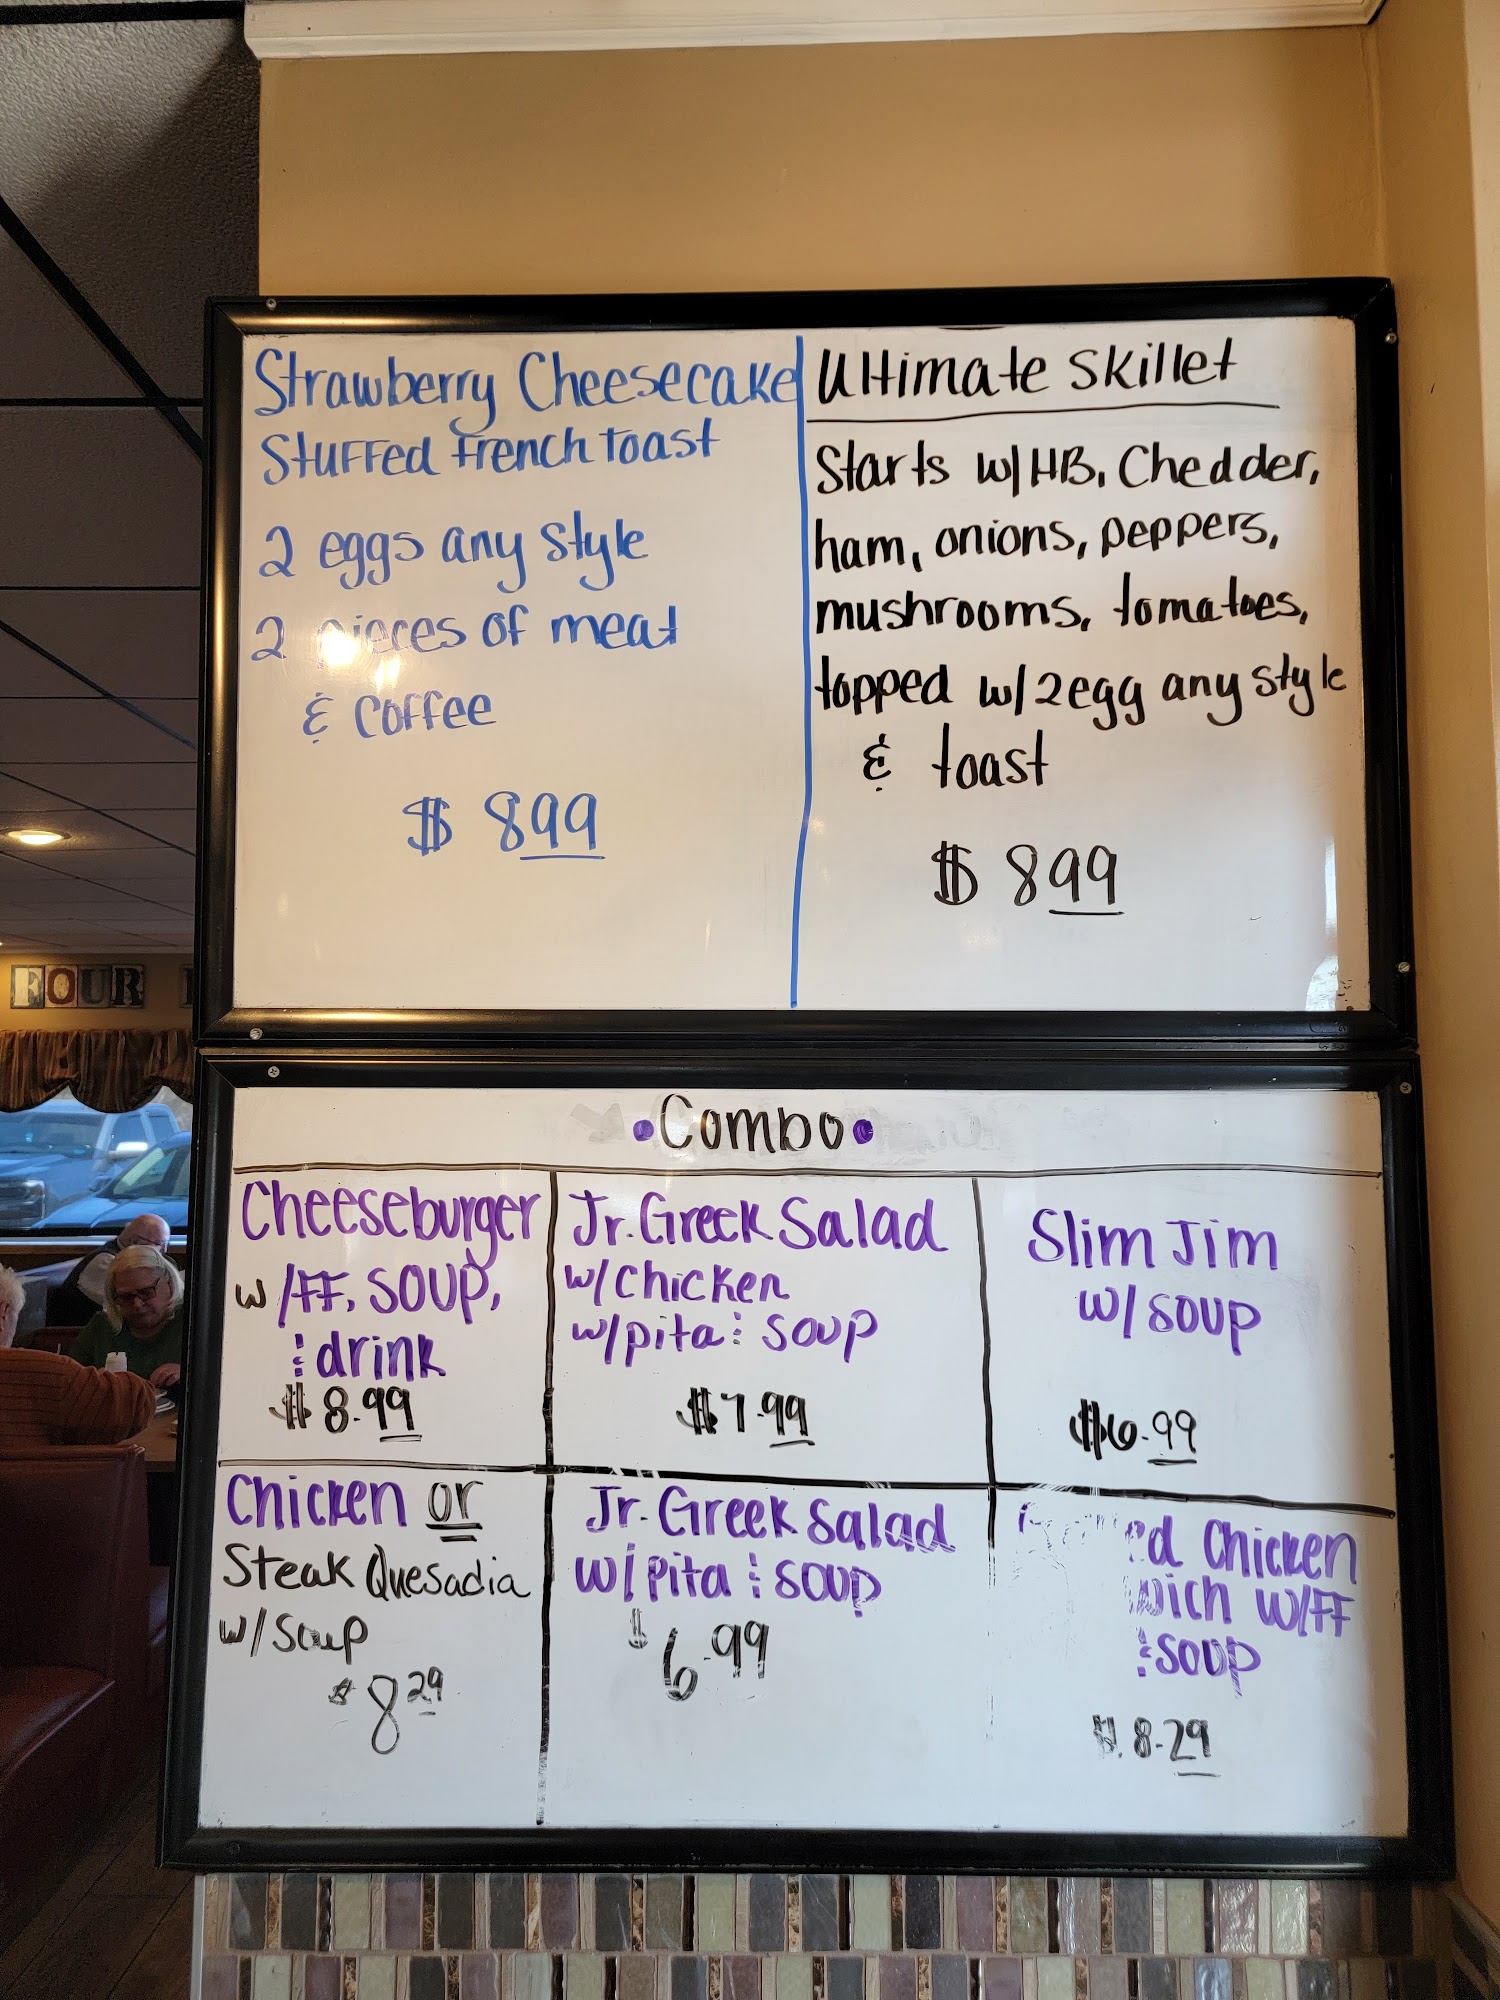 Strawberry Cheesecake
Stuffed French toast
2 eggs any style
2 pieces of meat
& Coffee
$ 899
Ultimate Skillet
Starts w/HB, Chedder,
ham, onions, peppers,
mushrooms, tomatoes,
topped w/2egg any style
& toast
$ 899
FOUR
•Combo•
Cheeseburger
w/FF, SOUP,
& drink
$8.99
Jr. Greek Salad
w/chicken
w/pita & soup
$7.99
Slim Jim
w/soup
$6.99
Chicken or
Steak Quesadia
w/Soup
$8 29
Jr. Greek Salad
w/pita & soup
$6.99
Chicken
w/FF
& soup
$.8.29